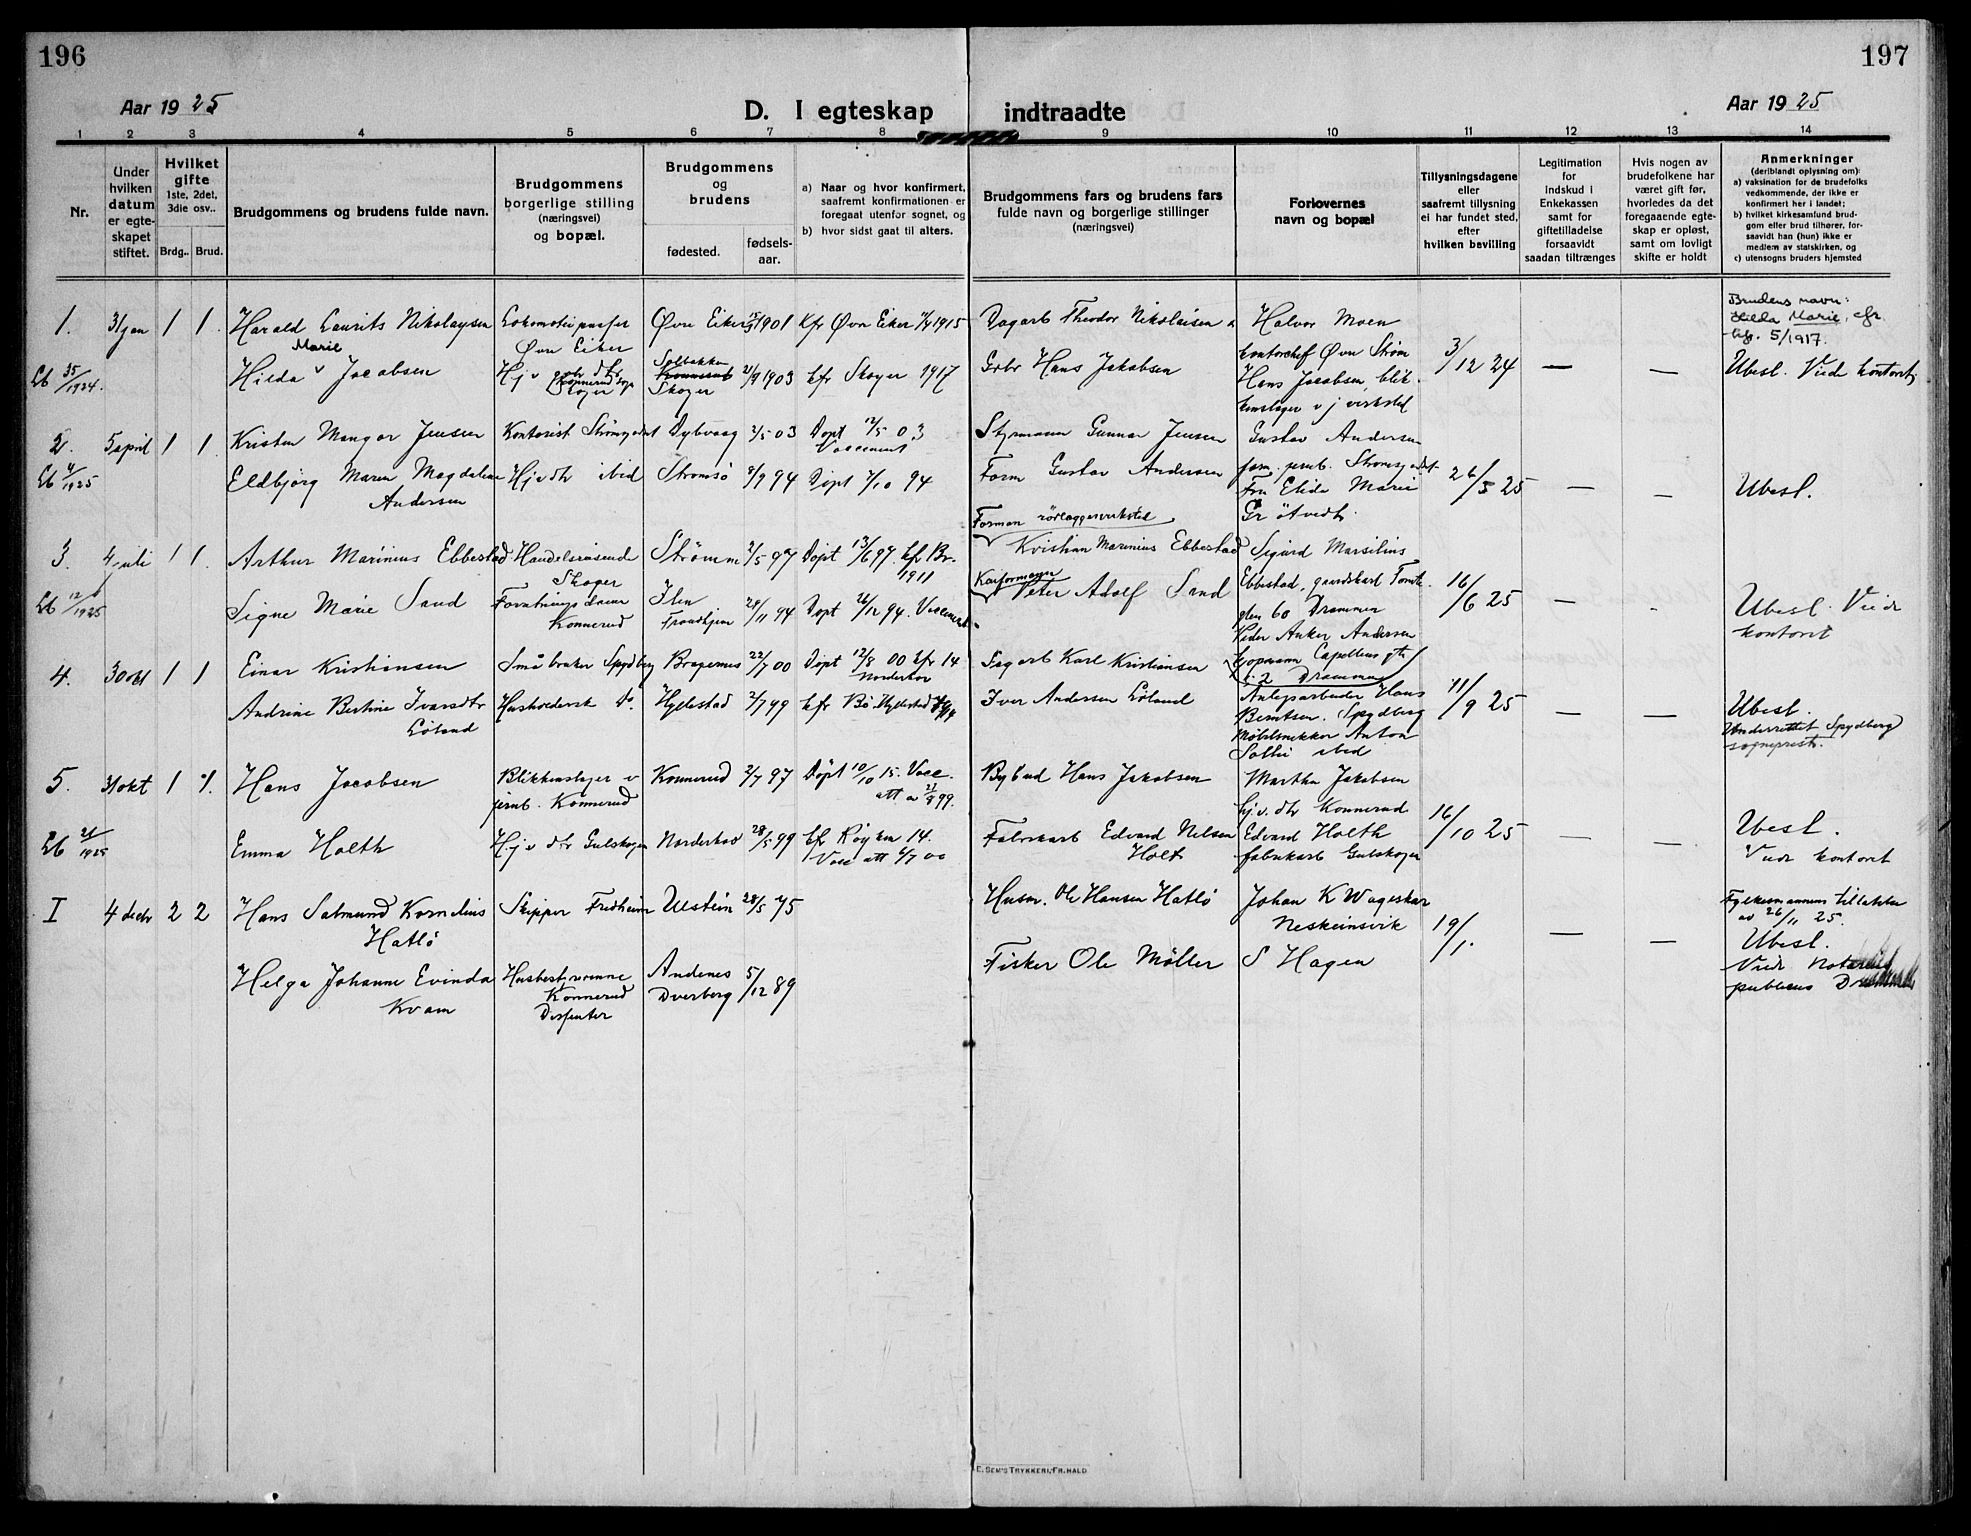 196
197
Aar 1925
D. I egteskap indtraadte
Aar 1925
1 2 3 4 5 6 7 8 9 10 11 12 13 14
Nr.
Under hvilken datum er egte-skapet stiftet.
Hvilket gifte
1ste, 2det, 3die osv..
Brdg.. Brud.
Brudgommens og brudens fulde navn.
Brudgommens borgerlige stilling (næringsvei) og bopæl.
Brudgommens og brudens
fødested.
fødsels-aar.
a) Naar og hvor konfirmert, saafremt konfirmationen er foregaat utenfor sognet, og
b) hvor sidst gaat til alters.
Brudgommens fars og brudens fars fulde navn og borgerlige stillinger (næringsvei)
Forlovernes navn og bopæl
Tillysningsdagene eller saafremt tillysning ei har fundet sted, efter hvilken bevilling
Legitimation for Indskud i Enkekassen samt for giftetilladelse forsaavidt saadan tiltrænges
Hvis nogen av brudefolkene har været gift før, hvorledes da det foregaaende egte-skap er opløst, samt om lovligt skifte er holdt
Anmerkninger
(deriblandt oplysning om):
a) vaksination for de brudefolks vedkommende, der ikke er konfirmert her i landet;
b) hvilket kirkesamfund brud-gom eller brud tilhører, for-saavidt han (hun) ikke er medlem av statskirken, og
c) utensogns bruders hjemsted
1. 31 jan 1 1 Harald Laurits Nikolaysen
Øvre Eiker
Øvre Eiker 1901 kfr Øvre Eiker 1915
Dagarb Theodor Nikolaisen
Halvor Moen
kontorchef Øvre Strøm
Brudens navn:
Hilda Marie, cfr.
5/1917.
Lb 35/1924.
Marie
Hilda Jacobsen
Skoger
Solbakken
Konnerud
Skoger
21/9 1903 kfr Skoger 1917
Grbr Hans Jakobsen
Hans Jacobsen, blik-
kenslager v j verksted
3/12 24 — —
Ubesl. Viede kontoret
2. 5 april 1 1 Kristen Mangor Jensen
Kontorist Strømsgodset
Dybvaag 2/5 03 Døpt 12/5 03
Vaccinert
Styrmann Gunnar Jensen
Gustav Andersen
form. jernb. Strømsgodset
Lb 4/1925
Eldbjørg Maren Magdalene
Andersen
Hj v dtr ibid
Strømsø 8/9 94 Døpt 7/10 94
Form Gustav Andersen
Fru Elida Marie
Grøtvedt.
26/3 25 — —
Ubesl.
3. 4 juli 1 1. Arthur Marinius Ebbestad
Handelsreisende
Skoger
Strømm 2/5 97 Døpt 13/6 97. kfr Br.
1911
Forman rørlæggerverksted
Kristian Marinius Ebbestad
Sigurd Marsilius
Ebbestad, gaardskarl Tomte-
gten 60 Drammen
Lb 12/1925
Signe Marie Sand
Forretningsdame
Konnerud
Ilen
Trondhjem
28/11 94 Døpt 26/12 94. Vaccinert.
Peter Adolf Sand
Peder Anker Andersen
16/6 25 — —
Ubesl. Viede
kontoret
4. 30 okt 1 1 Einar Kristiansen
Småbruker Spydberg
Bragernes 22/7 00 Døpt 12/8 00 kfr 14
Fagarb Karl Kristiansen
Andrine Bertine Ivarsdtr
Løland
Husholdersk Do.
Hyllestad 2/7 99 kfr Bø. Hyllestad
Iver Andersen Løland
Anlegsarbeider Hans
Berntsen. Spydberg
Møbelsnekker Anton
Solli ibid
11/9 25 — —
Ubesl.
Underrettet Spydberg
sogneprest.
5. 31 okt 1 1. Hans Jacobsen
Blikkenslager v
jernb. Konnerud
Konnerud 2/7 97 Døpt 10/10 15. Vacc.
att av 21/8 99.
Bybud Hans Jakobsen
Martha Jakobsen
hj v. dtr Konnerud
Lb 21/1925
Emma Holth
Hj v dtr Gulskogen
Norderhov 28/5 99 kfr Røyken 14.
Vacc att 6/7 00
Fabrikarb Edvard Nilsen
Holt
Edvard Holth
fabrikarb Gulskogen
16/10 25 — —
Ubesl.
Viede kontoret
I 4 decbr 2 2 Hans Salmund Kornelius
Hatlø
Skipper Fredheim
Ulstein 28/5 75
Husm. Ole Hansen Hatlø
Johan K Vageskar
Neskeinsvik
19/1. — —
Fylkesmannens tillatelse
av 26/11 25.
Ubesl.
Helga Johanne Evinda
Kvam
Husbestyrerinne
Konnerud
Dissenter
Andenes
Dverberg
5/12 89
Fisker Ole Møller
S Hagen
Viede Notarius
publicus
E. SEM'S TRYKKERI, FR.HALD